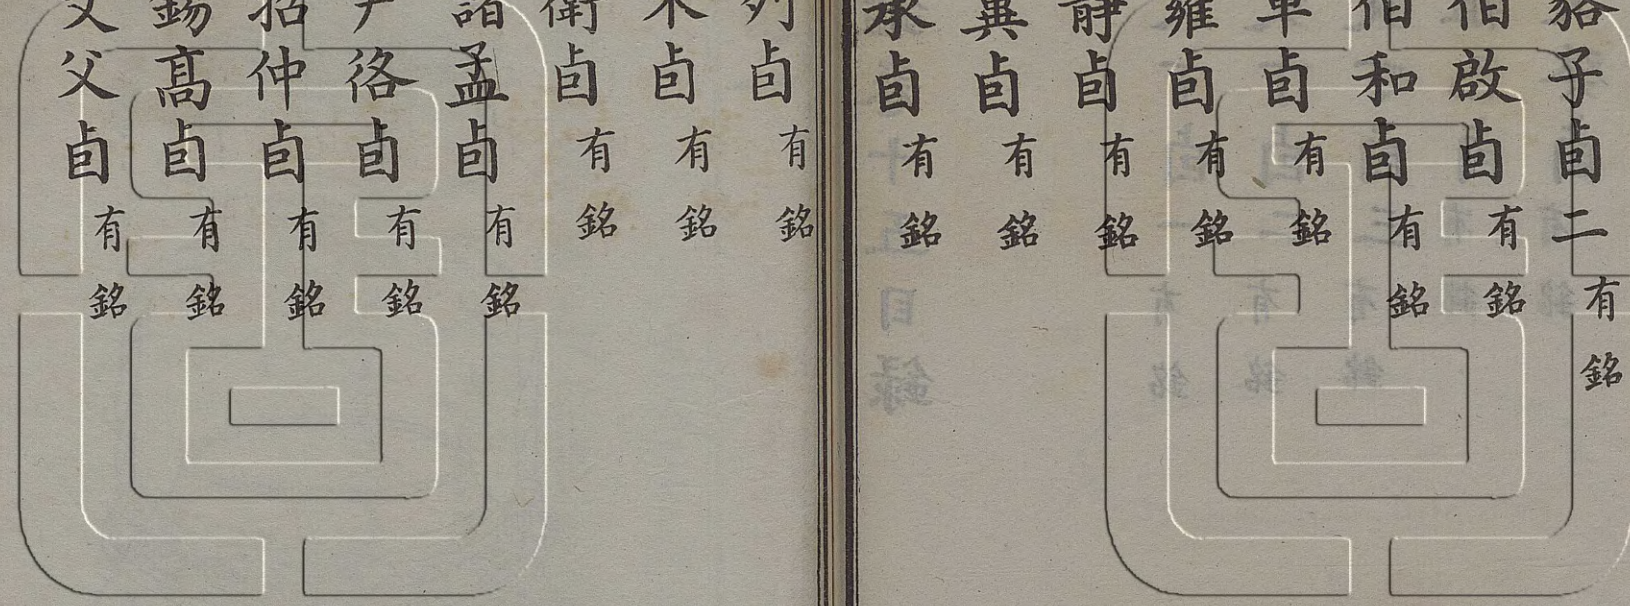 貉子卣二有銘
伯啟卣有銘
伯和卣有銘
卣有銘
雍卣有銘
靜卣有銘
卣有銘
承卣有銘
卣有銘
卣有銘
衛卣有銘
孟卣有銘
卣有銘
招仲卣有銘
錫高卣有銘
父卣有銘